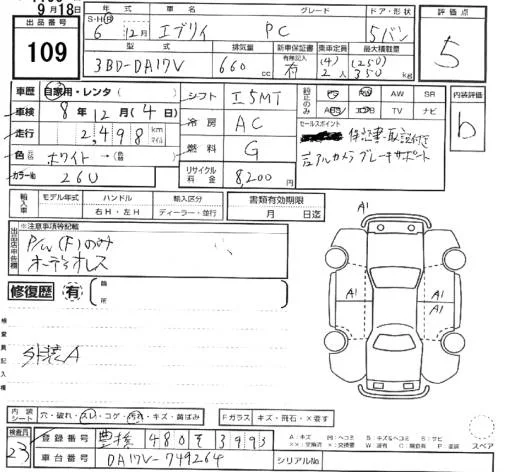 9月18日
出品番号
109
年式 車名 グレード ドア・形状
S・H・R 6年 12月 エブリイ PC 5バン
型式 排気量 新車保証書 乗車定員 最大積載量
3BD-DA17V 660cc 有無記入 有 (4) 2人 (250) 350kg
評価点
5
車歴 自家用・レンタ( )
シフト I5MT
車検 8年12月(4日)
冷房 AC
走行 2,498 km マイル
燃料 G
色 元色 ホワイト →(色替 )
リサイクル料金 8,200円
カラーNo 26U
純正のみ PS PW AW SR
ABS エアB TV ナビ
セールスポイント
保証書 取説付き
デュアルカメラブレーキサポート
内装評価
b
輸入車 モデル年式 ハンドル 輸入区分
年 右H・左H ディーラー・並行
書類有効期限
月 日迄
出品店申告欄
※注意事項等記載
P/W(F)のみ
オーディオレス
修復歴 有 箇所
検査員記入欄
外装A
A1
A1 A1
A1
スペア
内装シート 穴・破れ・スレ・コゲ・汚れ・キズ・黄ばみ
Fガラス キズ・飛石・X要す
検査員 23
登録番号 豊橋 480 を 3993
車台番号 DA17V-749264
シリアルNo
A:キズ U:ヘコミ B:キズ&ヘコミ S:サビ